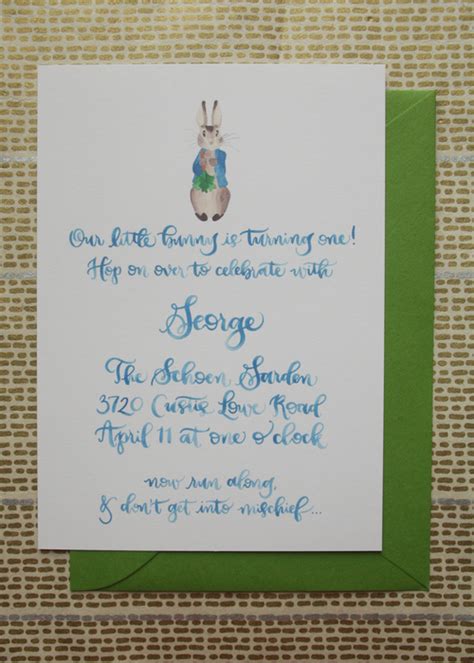 Our little bunny is turning one!
Hop on over to celebrate with
George
The Schoen Garden
3720 Custis Lowe Road
April 11 at one o'clock
now run along,
& don't get into mischief...